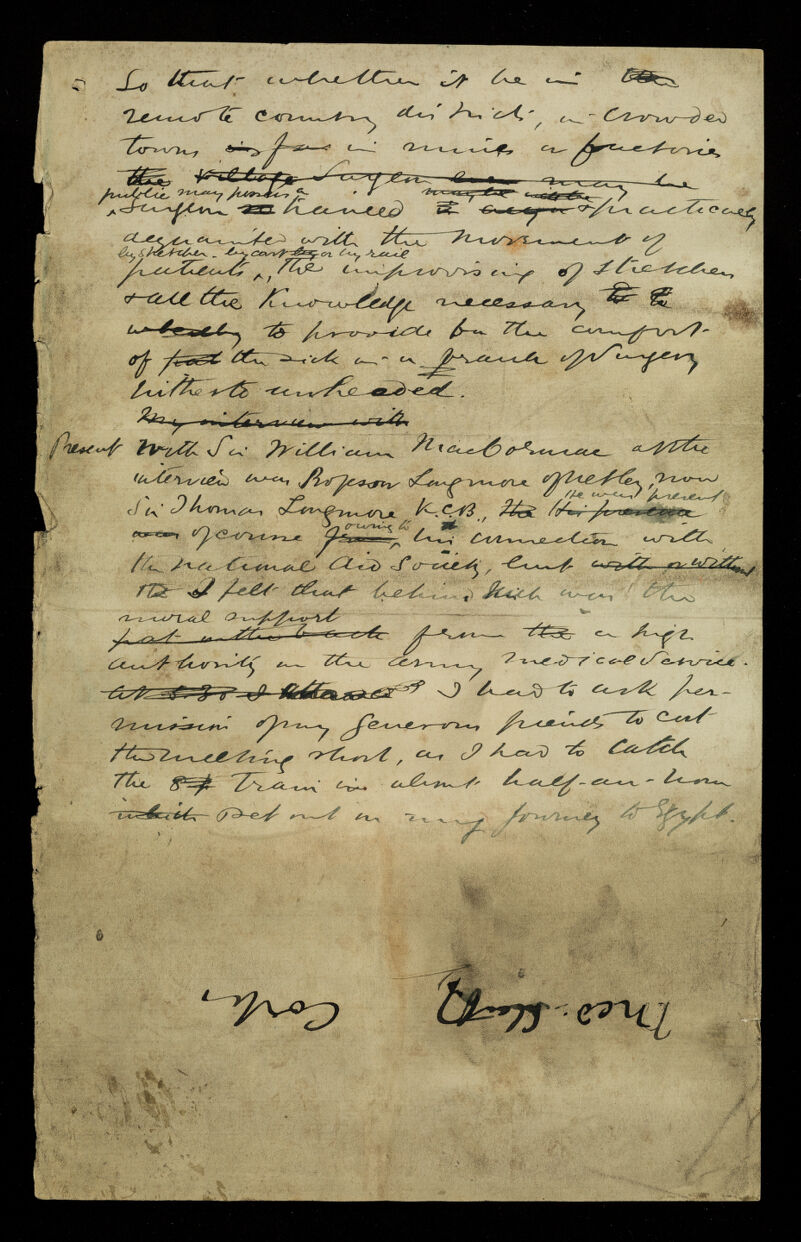 5 So that whether it be in the
remote country districts, in crowded
towns in mines or factories
the village Surgeon even may be
public may possess a may be
surgeon trained & practically
acquainted with the movement of
by stretcher - by cart or by rail
patients, The improvising of stretchers
& all the Knowledge necessary to
whereby to provide for the comfort
of the sick as a branch of Surgery
hitherto unheeded.
My interview with
Present with Sir William MacCormac at the
interview was Professor Longmore of Netley, now
He was present
Sir Thomas Longmore K.C.B., the His presence
owing to
was of course from, his connection with
the National Aid Society, but with or without
it I felt that behind him was the
moral support
pat on the back from the a high
authority in the Army Medical Service.
At 8.30 I I had to ask per-
mission of my generous friends to cut
the meeting short, as I had to catch
the 8 Train in about half-an-hour
which set out on my journey to Egypt.
Cork,